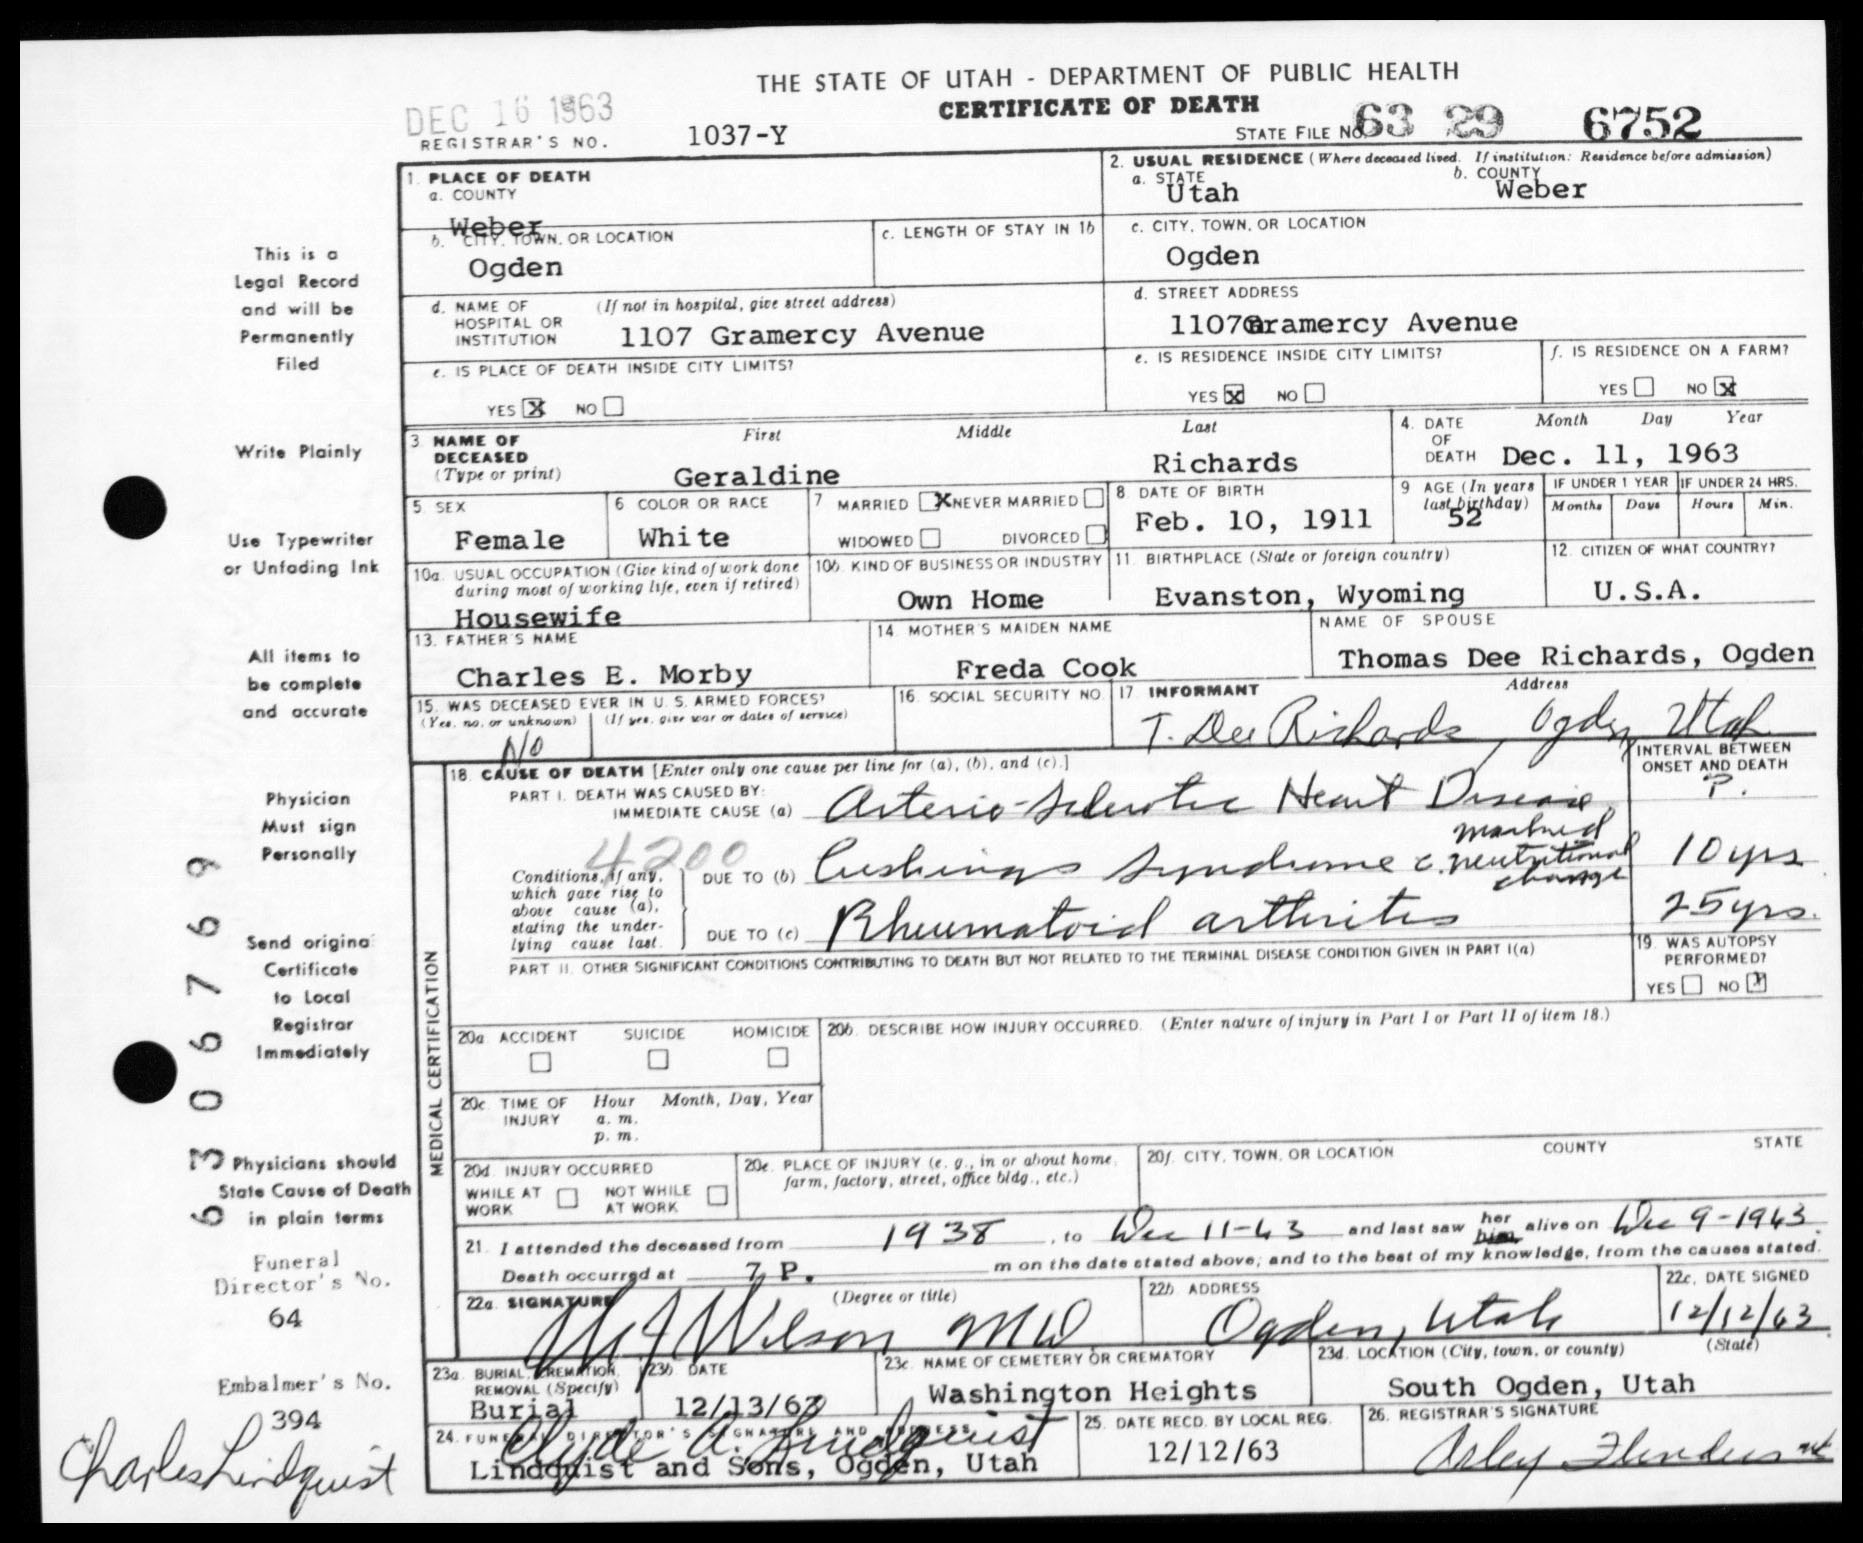 THE STATE OF UTAH - DEPARTMENT OF PUBLIC HEALTH
CERTIFICATE OF DEATH
DEC 16 1963
REGISTRAR'S NO. 1037-Y
STATE FILE NO. 63 29 6752
1. PLACE OF DEATH
a. COUNTY
Weber
b. CITY, TOWN, OR LOCATION
Ogden
c. LENGTH OF STAY IN 1b
d. NAME OF HOSPITAL OR INSTITUTION (If not in hospital, give street address)
1107 Gramercy Avenue
e. IS PLACE OF DEATH INSIDE CITY LIMITS?
YES X NO
2. USUAL RESIDENCE (Where deceased lived. If institution: Residence before admission)
a. STATE Utah
b. COUNTY Weber
c. CITY, TOWN, OR LOCATION
Ogden
d. STREET ADDRESS
1107 Gramercy Avenue
e. IS RESIDENCE INSIDE CITY LIMITS?
YES X NO
f. IS RESIDENCE ON A FARM?
YES NO X
3. NAME OF DECEASED (Type or print)
First Middle Last
Geraldine Richards
4. DATE OF DEATH Month Day Year
Dec. 11, 1963
5. SEX
Female
6 COLOR OR RACE
White
7 MARRIED X NEVER MARRIED
WIDOWED DIVORCED
8. DATE OF BIRTH
Feb. 10, 1911
9 AGE (In years last birthday)
52
IF UNDER 1 YEAR Months Days
IF UNDER 24 HRS. Hours Min.
10a. USUAL OCCUPATION (Give kind of work done during most of working life, even if retired)
Housewife
10b. KIND OF BUSINESS OR INDUSTRY
Own Home
11. BIRTHPLACE (State or foreign country)
Evanston, Wyoming
12. CITIZEN OF WHAT COUNTRY?
U.S.A.
13. FATHER'S NAME
Charles E. Morby
14. MOTHER'S MAIDEN NAME
Freda Cook
NAME OF SPOUSE
Thomas Dee Richards, Ogden
15. WAS DECEASED EVER IN U. S. ARMED FORCES?
(Yes, no, or unknown) (If yes, give war or dates of service)
No
16. SOCIAL SECURITY NO.
17. INFORMANT Address
T. Dee Richards, Ogden, Utah
18. CAUSE OF DEATH [Enter only one cause per line for (a), (b), and (c).]
INTERVAL BETWEEN ONSET AND DEATH
PART I. DEATH WAS CAUSED BY:
IMMEDIATE CAUSE (a) Arterio-Sclerotic Heart Disease
?.
4200
Conditions, if any, which gave rise to above cause (a), stating the underlying cause last.
DUE TO (b) Cushings Syndrome c. marked neutritional change 10 yrs
DUE TO (c) Rheumatoid arthritis 25 yrs.
PART II. OTHER SIGNIFICANT CONDITIONS CONTRIBUTING TO DEATH BUT NOT RELATED TO THE TERMINAL DISEASE CONDITION GIVEN IN PART I(a)
19. WAS AUTOPSY PERFORMED?
YES NO X
MEDICAL CERTIFICATION
20a. ACCIDENT SUICIDE HOMICIDE
20b. DESCRIBE HOW INJURY OCCURRED. (Enter nature of injury in Part I or Part II of item 18.)
20c. TIME OF INJURY Hour Month, Day, Year
a. m.
p. m.
20d. INJURY OCCURRED
WHILE AT WORK NOT WHILE AT WORK
20e. PLACE OF INJURY (e. g., in or about home, farm, factory, street, office bldg., etc.)
20f. CITY, TOWN, OR LOCATION COUNTY STATE
21. I attended the deceased from 1938, to Dec 11-63 and last saw her him alive on Dec 9-1963.
Death occurred at 7 P. m on the date stated above; and to the best of my knowledge, from the causes stated.
22a. SIGNATURE (Degree or title)
Wilson MD
22b ADDRESS
Ogden, Utah
22c. DATE SIGNED
12/12/63
23a. BURIAL, CREMATION, REMOVAL (Specify)
Burial
23b. DATE
12/13/63
23c. NAME OF CEMETERY OR CREMATORY
Washington Heights
23d. LOCATION (City, town, or county) (State)
South Ogden, Utah
24. FUNERAL DIRECTOR'S SIGNATURE AND ADDRESS
Clyde A. Lindquist
Lindquist and Sons, Ogden, Utah
25. DATE RECD. BY LOCAL REG.
12/12/63
26. REGISTRAR'S SIGNATURE
This is a
Legal Record
and will be
Permanently
Filed
Write Plainly
Use Typewriter
or Unfading Ink
All items to
be complete
and accurate
Physician
Must sign
Personally
Send original
Certificate
to Local
Registrar
Immediately
Physicians should
State Cause of Death
in plain terms
Funeral
Director's No.
64
Embalmer's No.
394
Charles Lindquist
6306769